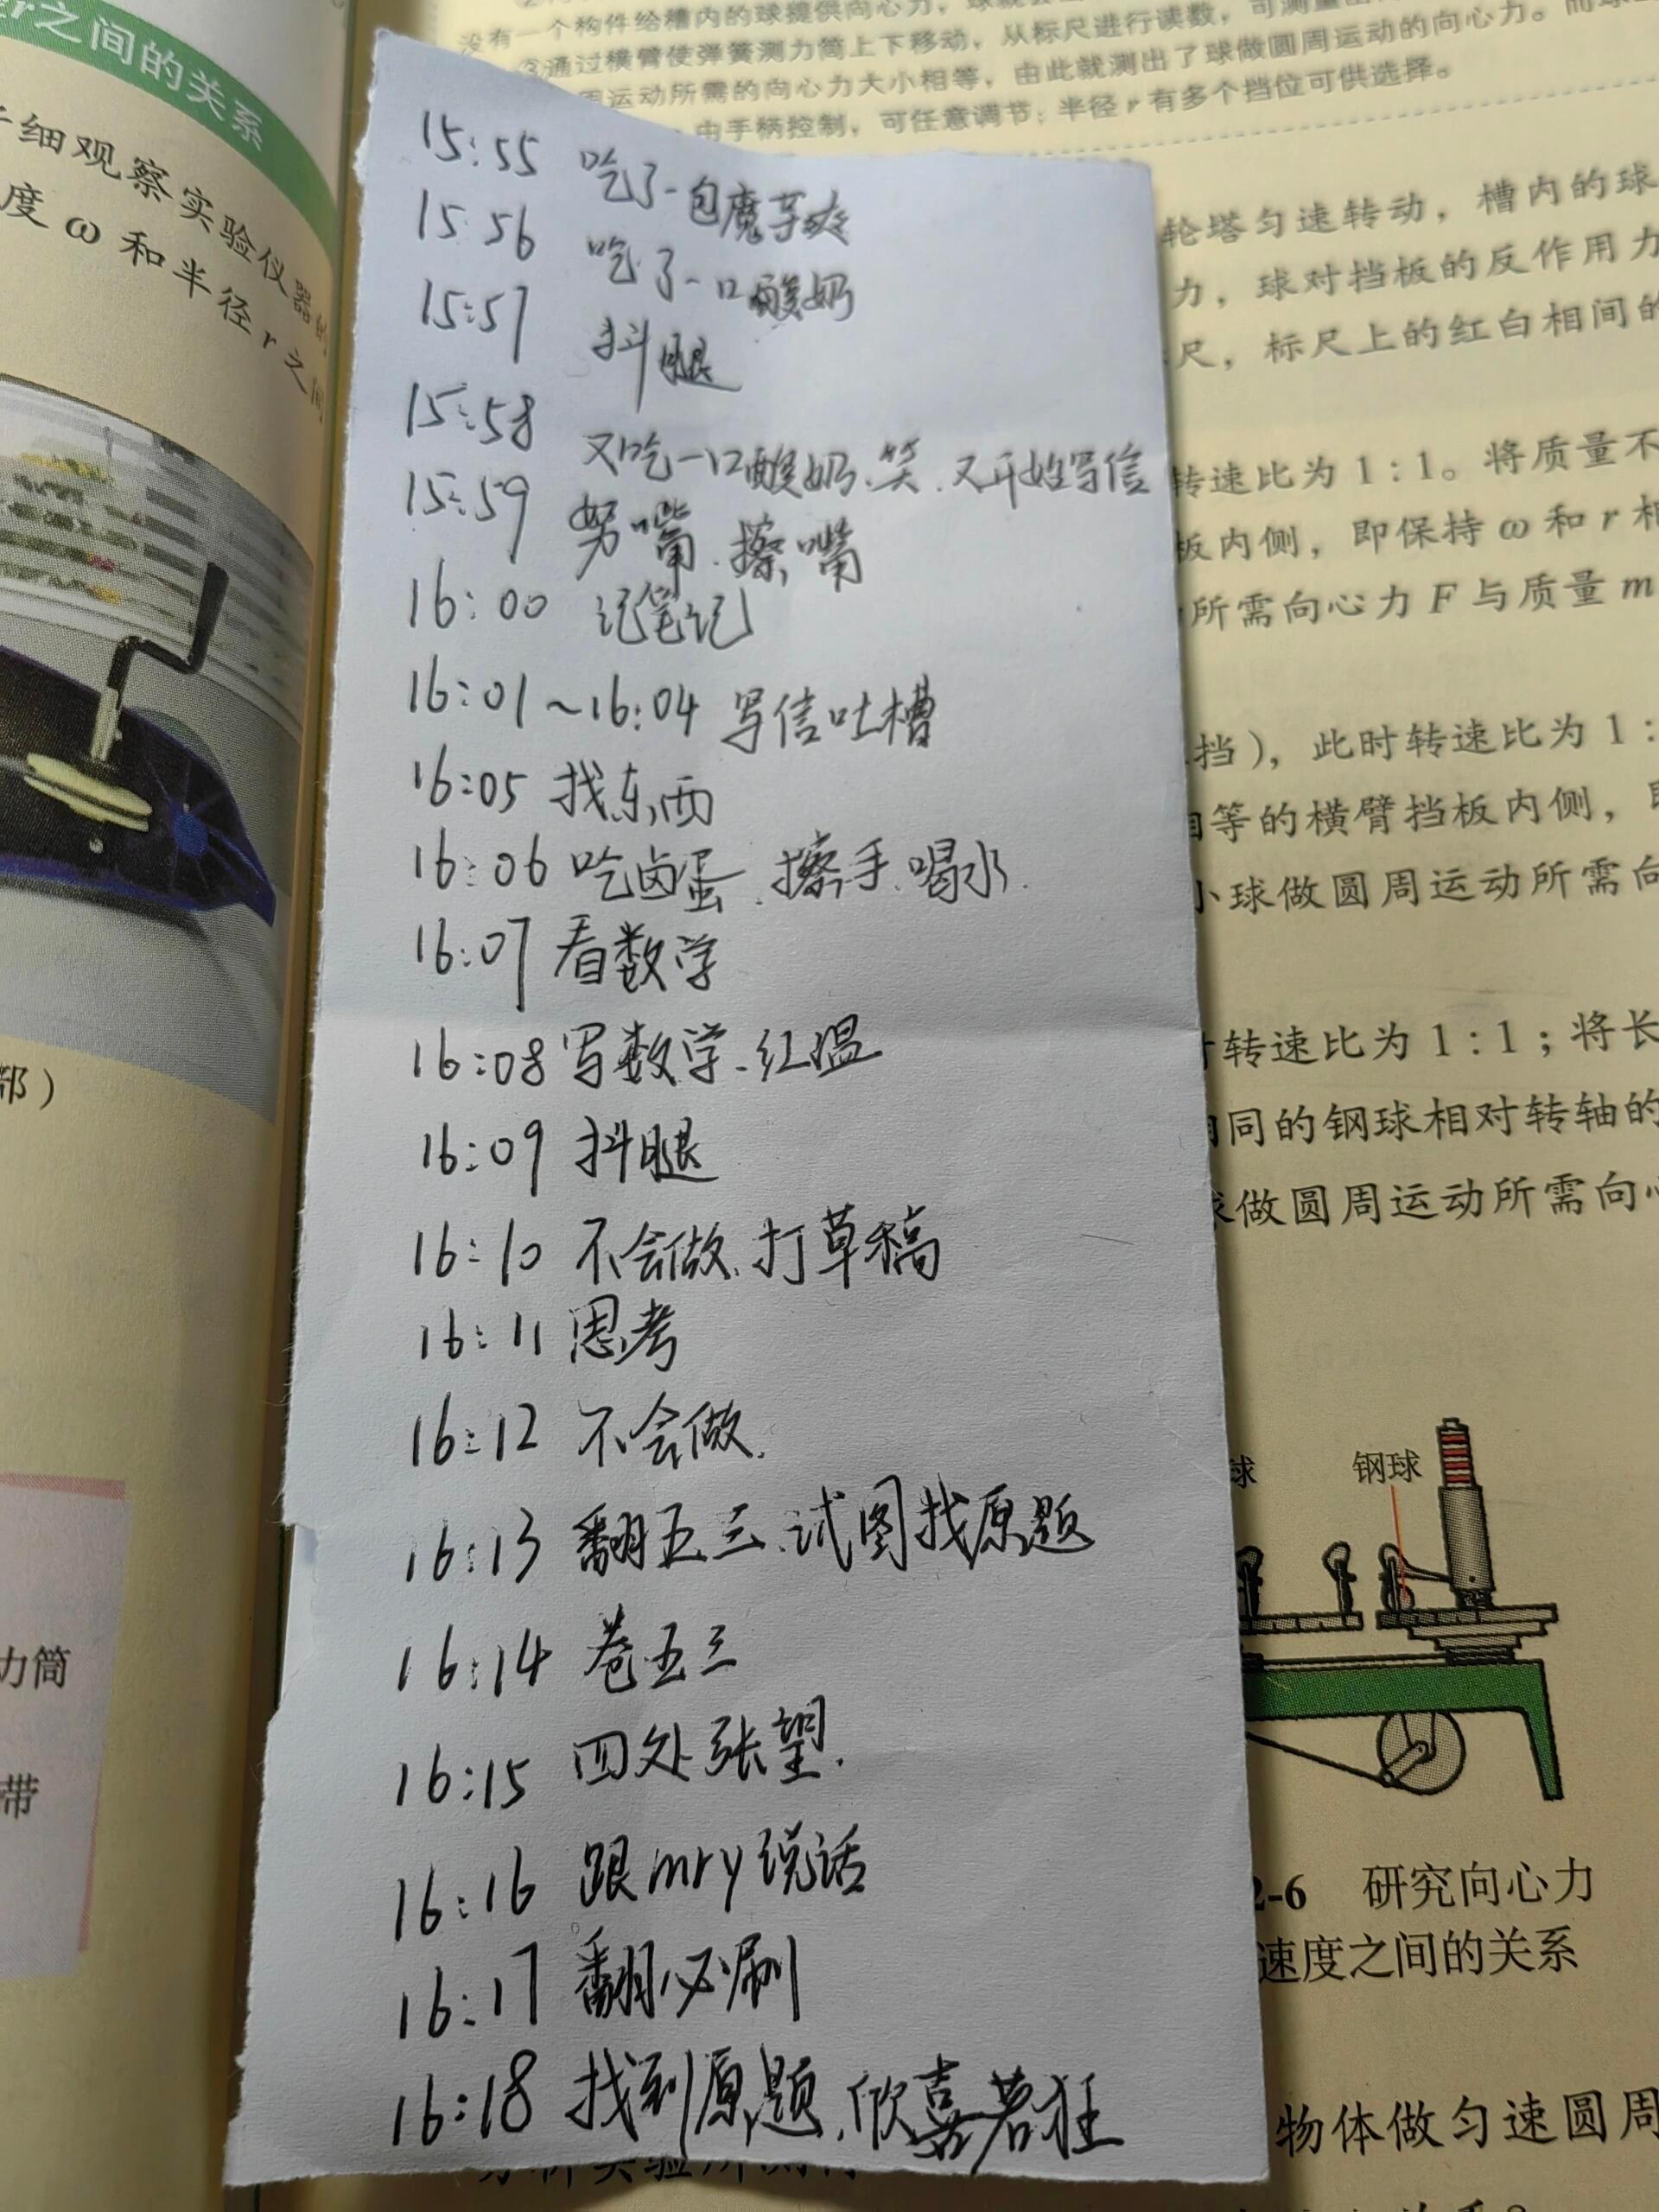 r之间的关系
细观察实验仪器的
度 ω 和半径 r 之间
部）
力筒
带
没有一个构件给槽内的球提供向心力，
③通过横臂使弹簧测力筒上下移动，从标尺进行读数，可测量出
周运动所需的向心力大小相等，由此就测出了球做圆周运动的向心力。而球
由手柄控制，可任意调节；半径 r 有多个挡位可供选择。
15:55 吃了一包魔芋爽
15:56 吃了一口酸奶
15:57 抖腿
15:58 又吃一口酸奶、笑、又开始写信
15:59 努嘴、擦嘴
16:00 记笔记
16:01～16:04 写信吐槽
16:05 找东西
16:06 吃卤蛋、擦手、喝水.
16:07 看数学
16:08 写数学、红温
16:09 抖腿
16:10 不会做、打草稿
16:11 思考
16:12 不会做.
16:13 翻五三、试图找原题
16:14 卷五三
16:15 四处张望.
16:16 跟mry说话
16:17 翻必刷
16:18 找到原题、欣喜若狂
轮塔匀速转动，槽内的球
力，球对挡板的反作用力
尺，标尺上的红白相间的
转速比为 1：1。将质量不
板内侧，即保持 ω 和 r 相
所需向心力 F 与质量 m
挡），此时转速比为 1：
相等的横臂挡板内侧，
小球做圆周运动所需向
转速比为 1：1；将长
相同的钢球相对转轴的
球做圆周运动所需向心
球 钢球
2-6 研究向心力
速度之间的关系
物体做匀速圆周